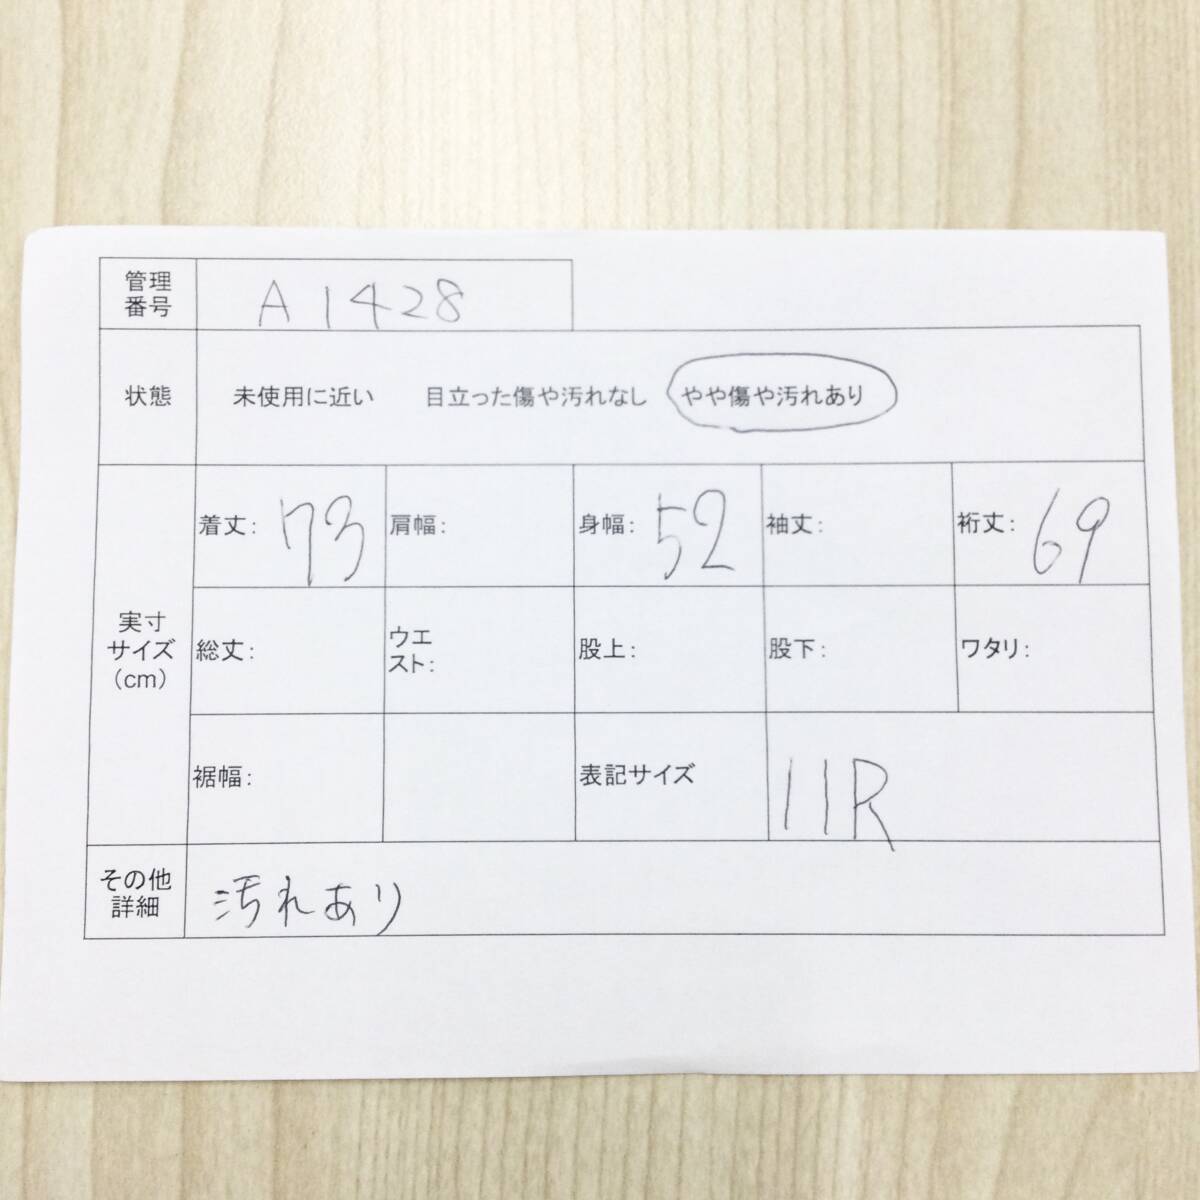 管理
番号
A1428
状態
未使用に近い 目立った傷や汚れなし やや傷や汚れあり
実寸
サイズ
(cm)
着丈: 73
肩幅:
身幅: 52
袖丈:
裄丈: 69
総丈:
ウエ
スト:
股上:
股下:
ワタリ:
裾幅:
表記サイズ
11R
その他
詳細
汚れあり